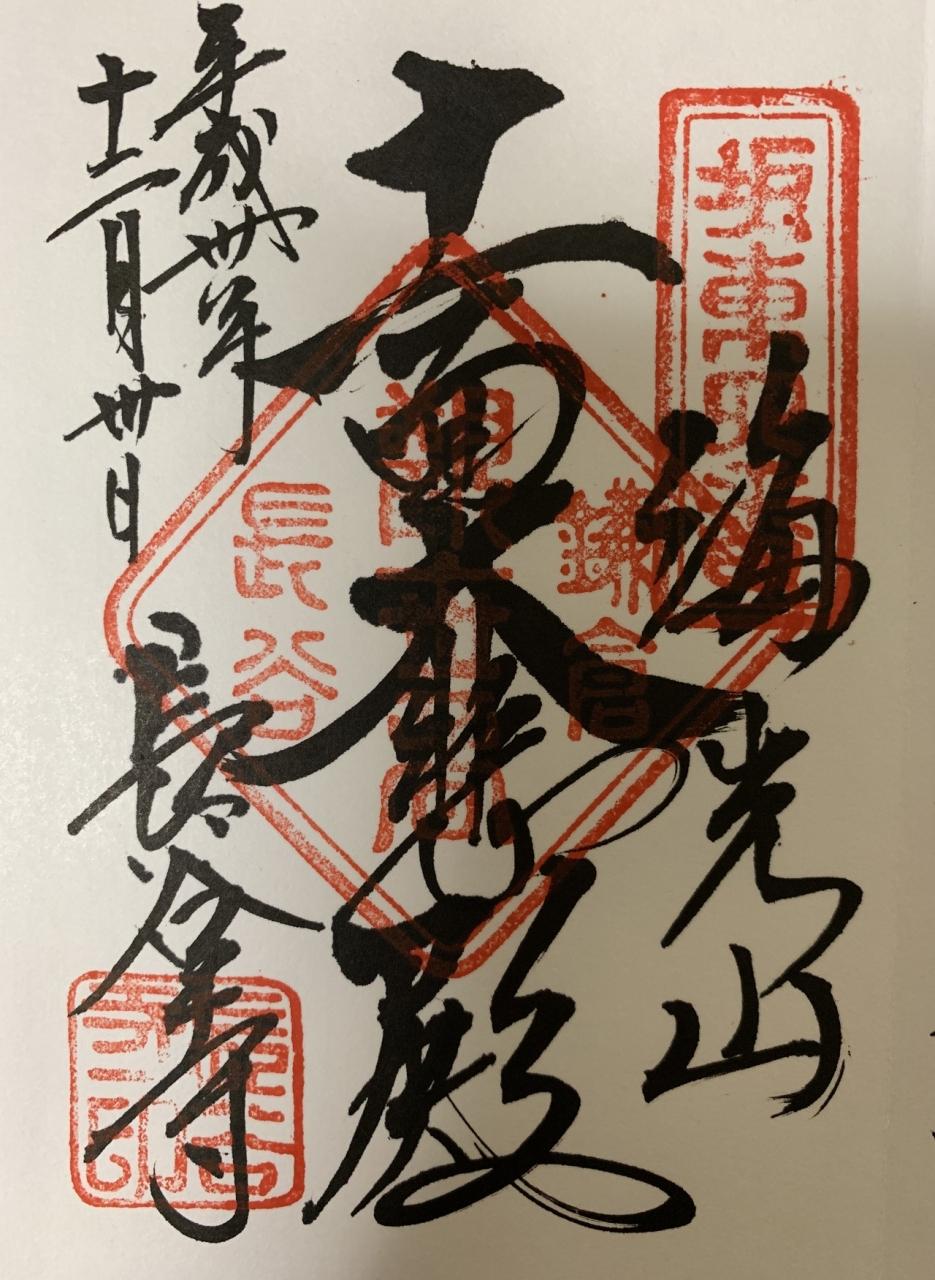 坂東四番
海光山
十一面大悲殿
鎌倉
長谷
平成卅年
十二月卅日
長谷寺
長谷寺印